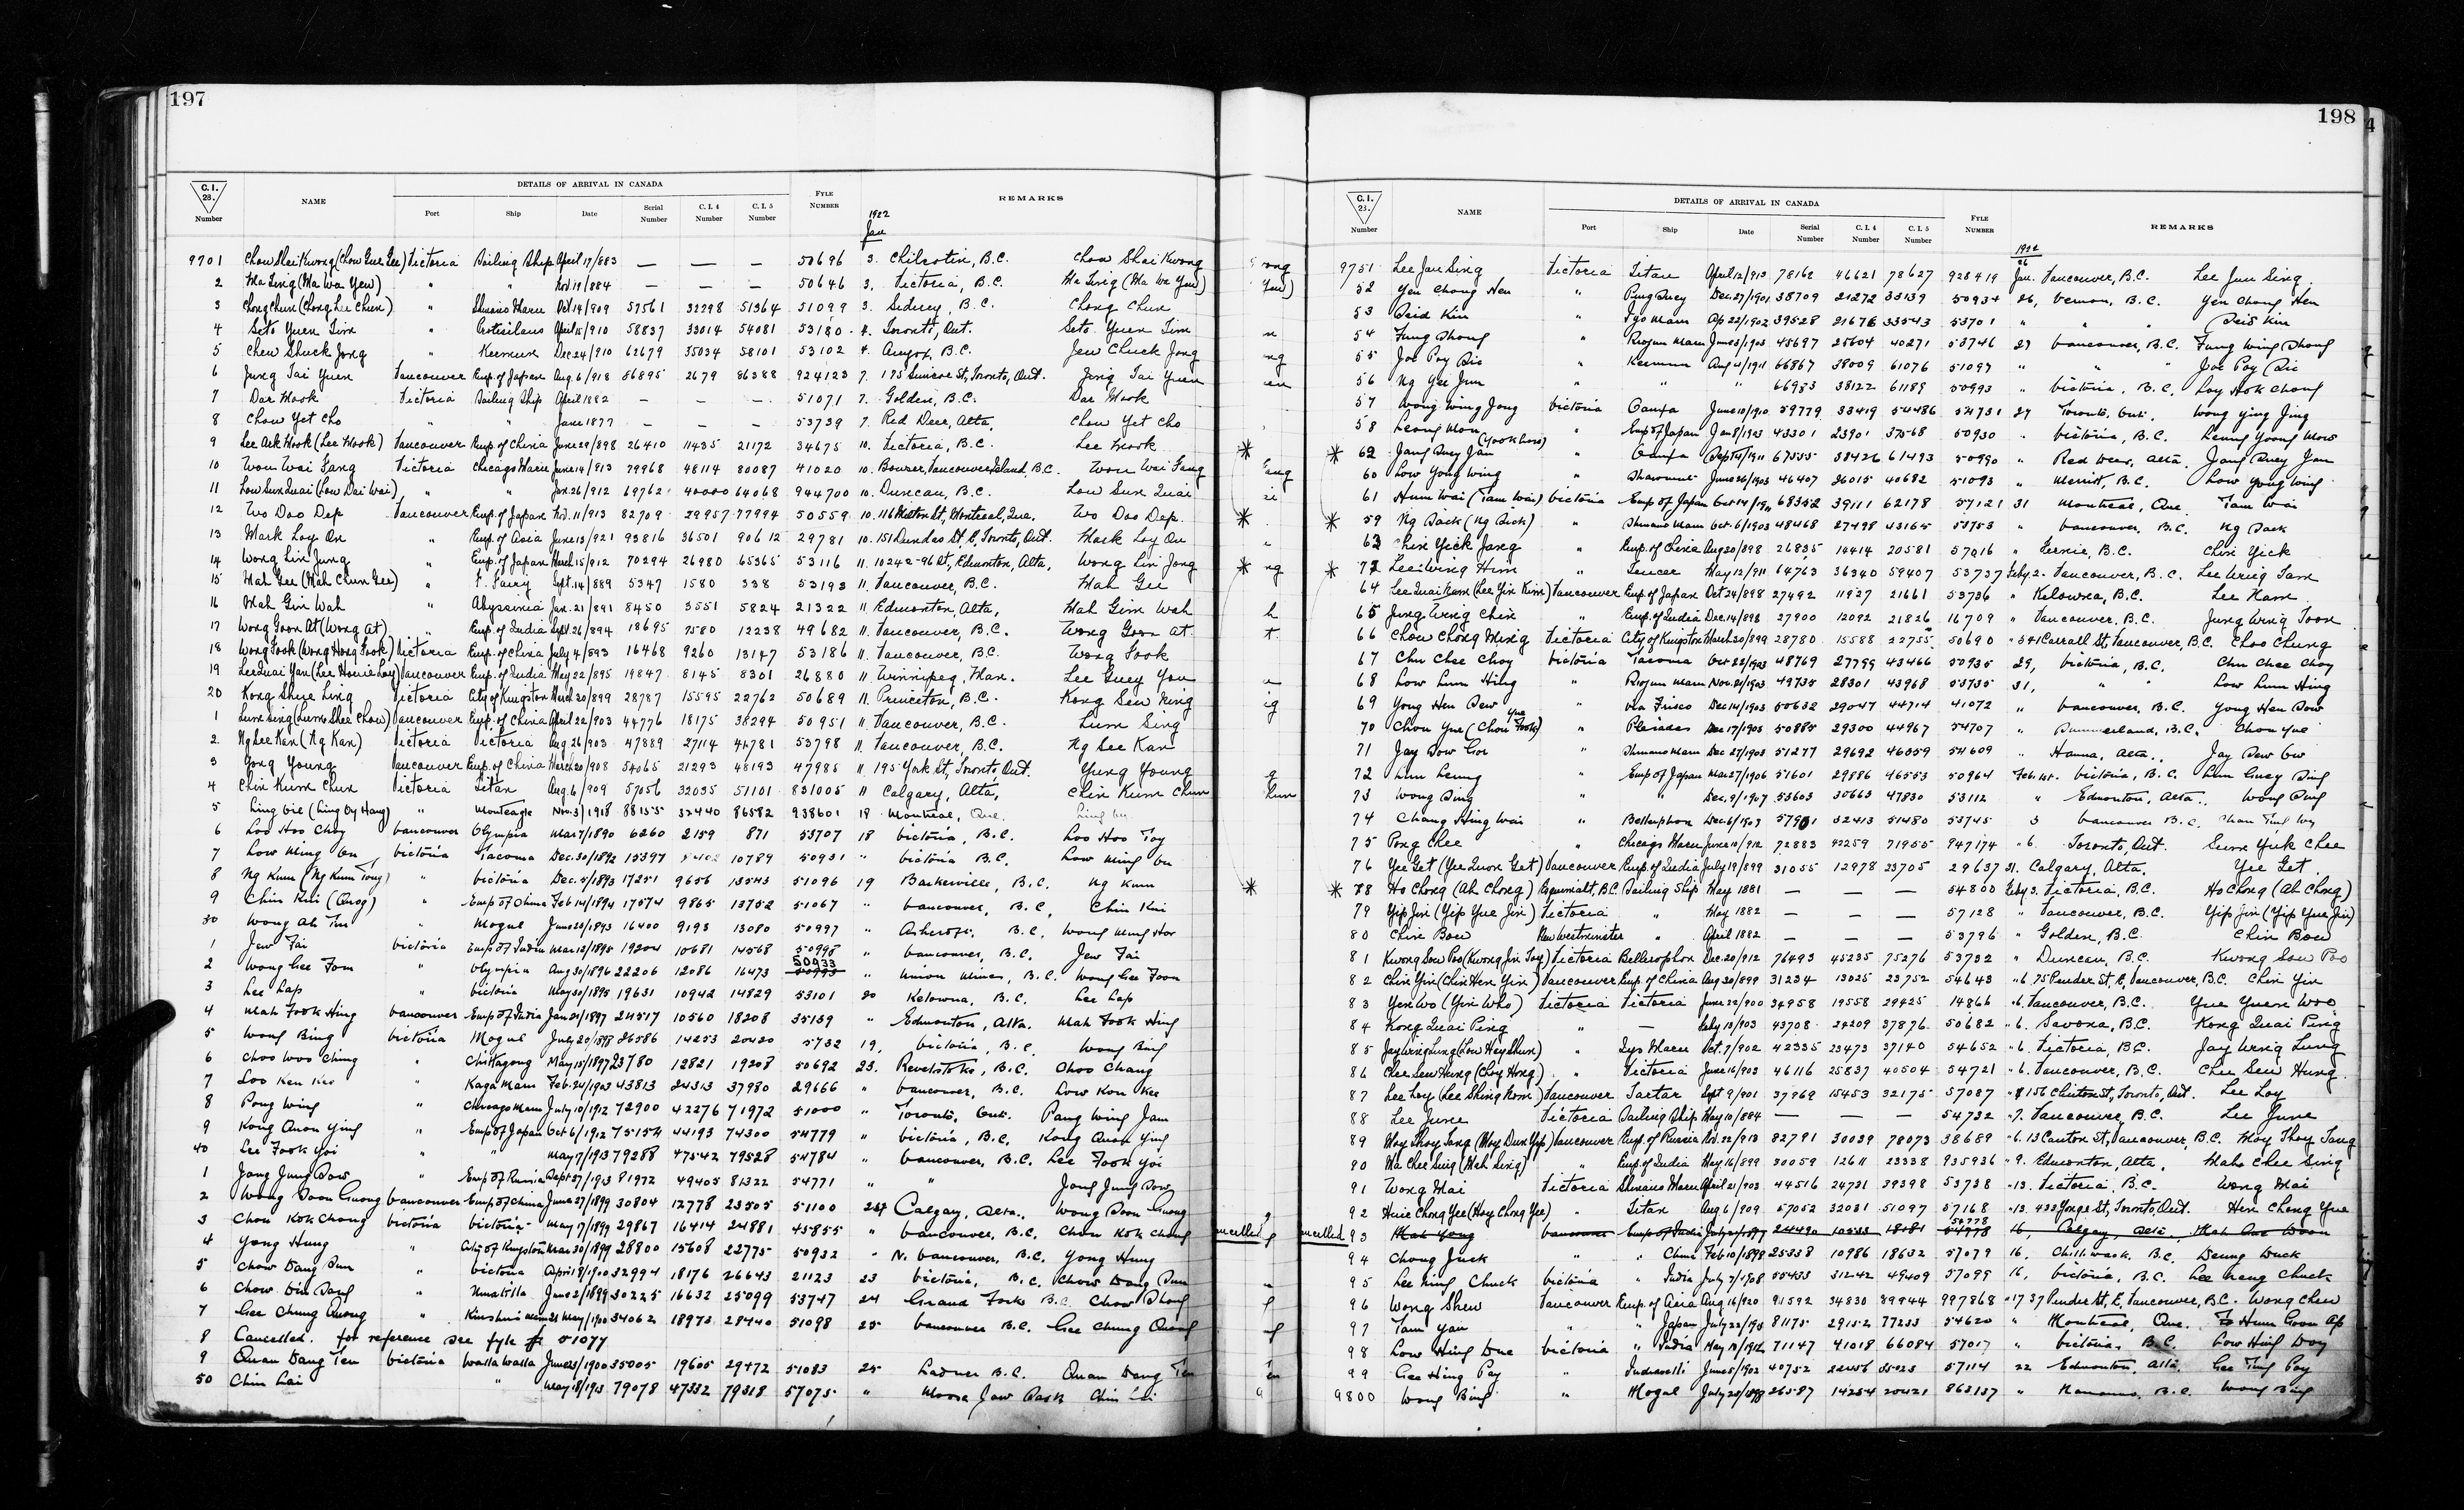 197
C. I. 28. Number NAME DETAILS OF ARRIVAL IN CANADA Port Ship Date Serial Number C. I. 4 Number C. I. 5 Number FYLE NUMBER REMARKS
1922 Jan
9701 Chow Shai Kwong (Chow Gue Gee) Victoria Sailing Ship April 17/883 — — — 50696 3. Chilcotin, B.C. Chow Shai Kwong
2 Ma Sing (Ma Wa Yew) " " Nov 19/884 — — — 50646 3. Victoria, B.C. Ma Sing (Ma Wa Yew)
3 Chong Chun (Chong Lee Chun) " Shinano Maru Oct 14/909 57561 32298 51364 51099 3. Sidney, B.C. Chong Chun
4 Seto Yuen Tim " Protesilaus April 15/910 58837 33014 54081 53180 4. Toronto, Ont. Seto Yuen Tim
5 Chew Shuck Jong " Keemun Dec 24/910 62679 35034 58101 53102 4. Anyox, B.C. Jew Chuck Jong
6 Jung Tai Yuen Vancouver Emp. of Japan Aug. 6/918 86895 2679 86388 924123 7. 175 Simcoe St, Toronto, Ont. Jung Tai Yuen
7 Dar Mook Victoria Sailing Ship April 1882 — — — 51071 7. Golden, B.C. Dar Mook
8 Chow Yet Cho " " June 1877 — — — 53739 7. Red Deer, Alta. Chow Yet Cho
9 Lee Ack Mook (Lee Mook) Vancouver Emp. of China June 29/898 26410 11435 21172 34675 10. Victoria, B.C. Lee Mook
10 Wou Wai Fang Victoria Chicago Maru June 14/913 79968 48114 80087 41020 10. Bowser, Vancouver Island, B.C. Wou Wai Fang
11 Low Sun Quai (Low Dai Wai) " " Jan. 26/912 69762 40000 64068 944700 10. Duncan, B.C. Low Sun Quai
12 Wo Doo Dep Vancouver Emp. of Japan Nov. 11/913 82709 29957 77994 50559 10. Montreal, Que. Wo Doo Dep.
13 Mark Loy On " Emp. of Asia June 13/921 93816 36501 90612 29781 10. 151 Dundas St. E, Toronto, Ont. Mark Loy On
14 Wong Lin Jung " Emp. of Japan March 15/912 70294 26980 65365 53116 11. 10242-96 St, Edmonton, Alta. Wong Lin Jong
15 Mah Gee (Mah Chun Gee) " Sept. 14/889 5347 1580 338 53193 11. Vancouver, B.C. Mah Gee
16 Mah Gin Wah " Abyssinia Jan. 21/891 8450 3551 5824 21322 11. Edmonton, Alta. Mah Gim Wah
17 Wong Goon At (Wong At) " Emp. of India Sept. 26/894 18695 7580 12238 49682 11. Vancouver, B.C. Wong Goon At.
18 Wong Fook (Wong Hong Fook) Victoria Emp. of China July 4/893 16468 9260 13147 53186 11. Vancouver, B.C. Wong Fook
19 Lee Quai Yan (Lee Howie Loy) Vancouver Emp. of India May 22/895 19847 8145 8301 26880 11. Winnipeg, Man. Lee Guey You
20 Kong Shue Ling Victoria City of Kingston March 20/899 28787 15595 22762 50689 11. Princeton, B.C. Kong Sew Ning
1 Lum Sing (Lum Shee Chow) Vancouver Emp. of China April 22/903 44776 18175 38294 50951 11. Vancouver, B.C. Lum Sing
2 Ng Lee Kan (Ng Kan) Victoria Victoria Aug. 26/903 47889 27114 42781 53798 11. Vancouver, B.C. Ng Lee Kan
3 Yong Young Vancouver Emp. of China March 20/908 54065 21293 48193 47985 11. 195 York St, Toronto, Ont. Yung Young
4 Chin Kum Chun Victoria Titan Aug. 6/909 57056 32035 51101 831005 11. Calgary, Alta. Chin Kum Chun
5 Ling Oie (Ling Oy Hang) " Monteagle Nov. 3/1918 88155 32440 86582 938601 18 Montreal, Que.
6 Loo Hoo Choy Vancouver Olympia Mar 7/1890 6260 2159 871 53707 18 Victoria, B.C. Loo Hoo Toy
7 Low Ming On Victoria Tacoma Dec. 30/1892 15397 8402 10789 50931 " Victoria B.C. Low Ming On
8 Ng Kum (Ng Kum Tong) " Victoria Dec. 5/1893 17251 9656 13543 51096 19 Barkerville, B.C. Ng Kum
9 Chin Kui (Quog) " Emp of China Feb 14/1894 17574 9865 13752 51067 " Vancouver, B.C. Chin Kui
30 Wong Ah Tin " Mogul June 20/1893 16400 9193 13080 50997 " Ashcroft, B.C. Wong Ming Hor
1 Jew Fai Victoria Emp of India Mar 12/1895 19204 10681 14568 50998 " Vancouver, B.C. Jew Fai
2 Wong Gee Fom " Olympia Aug 30/1896 22206 12086 16473 50933 " Union Mines, B.C. Wong Gee Foon
3 Lee Lap " Victoria May 30/1895 19631 10942 14829 53101 20 Kelowna, B.C. Lee Lap
4 Mah Fook Hing Vancouver Emp of India Jan 21/1897 24517 10560 18208 35139 " Edmonton, Alta. Mah Fook Hing
5 Wong Bing Victoria Mogul July 20/1898 26586 14253 20420 5732 19, Victoria, B.C. Wong Bing
6 Choo Woo Ching " Chittagong May 15/1897 23780 12821 19208 50692 23. Revelstoke, B.C. Choo Chang
7 Loo Ken Kee " Kaga Maru Feb. 24/1903 43813 24313 37980 29666 " Vancouver, B.C. Low Kon Kee
8 Pong Wing " Chicago Maru July 10/1912 72900 42276 71972 51000 " Toronto, Ont. Pang Wing Jam
9 Kong Quon Ying " Emp of Japan Oct 6/1912 75154 44193 74300 54779 " Victoria, B.C. Kong Quon Ying
40 Lee Fook Yoi " " May 7/1913 79288 47542 79528 54784 " Vancouver, B.C. Lee Fook Yoi
1 Jong Jung Dow " Emp of Russia Sept 27/1913 81972 49405 81322 54771 " " Jong Jung Dow
2 Wong Doon Guong Vancouver Emp of China June 27/1899 30804 12778 23505 51100 24 Calgary, Alta. Wong Doon Guong
3 Chou Kok Chong Victoria Victoria May 17/1899 29867 16414 24881 45855 " Vancouver, B.C. Chou Kok Chong
4 Yong Hung " City of Kingston Mar 30/1899 28800 15608 22775 50932 " N. Vancouver, B.C. Yong Hung
5 Chow Dang Sun " Victoria April 8/1900 32994 18176 26643 21123 23 Victoria, B.C. Chow Dang Sun
6 Chow Din Dong " Umatilla June 2/1899 30225 16632 25099 53747 24 Grand Forks B.C. Chow Dhong
7 Gee Chung Quong " Kinshiu Maru 21 May/1900 34062 18973 28440 51098 25 Vancouver B.C. Gee Chung Quong
8 Cancelled. for reference see fyle # 51077
9 Quan Dang Ten Victoria Walla Walla June 23/1900 35005 19605 29472 51083 25 Ladner B.C. Quan Dang Ten
50 Chin Lai " " May 18/1913 79078 47332 79318 57075 " Moose Jaw Sask Chin Lai
198
C. I. 28. Number NAME DETAILS OF ARRIVAL IN CANADA Port Ship Date Serial Number C. I. 4 Number C. I. 5 Number FYLE NUMBER REMARKS
1922
9751 Lee Jun Sing Victoria Titan April 12/913 78162 46621 78627 928419 Jan. 26 Vancouver, B.C. Lee Jun Sing
52 Yen Chong Hen " Ping Suey Dec. 27/1901 38709 21272 33139 50934 26, Vernon, B.C. Yen Chong Hen
53 Seid Kin " Iyo Maru Ap 22/1902 39528 21676 33543 53701 " " " Seid Kin
54 Fung Dhong " Riojun Maru June 3/1903 45697 25604 40271 53746 27 Vancouver, B.C. Fung Wing Dhong
55 Joe Poy Sic " Keemun Aug 21/1911 66867 38009 61076 51097 " " " Joe Poy Sic
56 Ng Yee Jun " " " 66983 38122 61189 50993 " Victoria, B.C. Loy Hok Chong
57 Wong Wing Jong Victoria Oanfa June 18/1910 59779 33419 54486 54731 27 Toronto, Ont. Wong Ying Jing
58 Leong Mow " Emp of Japan Jan 8/1903 43301 23901 37568 50930 " Victoria, B.C. Leung Yoong Mow
* 62 Jang Suey Jan (Yook Low) " Oanfa Sept 14/1911 67535 38426 61493 50990 " Red Deer, Alta. Jang Suey Jan
60 Low Yong Wing " Shawmut June 26/1903 46407 26015 40682 51093 " Merritt, B.C. Low Yong Wing
61 Hum Wai (Tam Wai) Victoria Emp of Japan Oct 14/1911 68352 39111 62178 57121 31 Montreal, Que. Tam Wai
* 59 Ng Sack (Ng Sick) " Shinano Maru Oct. 6/1903 48468 27498 43165 53753 " Vancouver, B.C. Ng Sack
63 Chin Yick Jang " Emp. of China Aug 20/898 26835 14414 20581 57016 " Fernie, B.C. Chin Yick
* 77 Lee Wing Him " Teucer May 12/911 64763 36340 59407 53737 Feby. 2. Vancouver, B.C. Lee Wing Tam
64 Lee Quai Kam (Lee Yin Kim) Vancouver Emp. of Japan Oct 24/898 27492 11927 21661 53736 " Kelowna, B.C. Lee Kam
65 Jung Wing Chin " Emp. of India Dec. 14/898 27900 12092 21826 16709 " Vancouver, B.C. Jung Wing Toon
66 Chow Chong Ming Victoria City of Kingston March 30/899 28780 15588 22755 50690 " 541 Carrall St, Vancouver, B.C. Choo Chung
67 Chu Chee Choy Victoria Tacoma Oct 22/1903 48769 27799 43466 50935 29, Victoria, B.C. Chu Chee Choy
68 Low Lum Hing " Riojun Maru Nov. 21/1903 49735 28301 43968 53735 31, " " Low Lum Hing
69 Yong Hen Sew " via Frisco Dec 14/1903 50632 29047 44714 41072 " Vancouver, B.C. Yong Hen Sow
70 Chou Yue (Chou Yue Fook) " Pleiades Dec 17/1903 50885 29300 44967 54707 " Summerland, B.C. Chou Yue
71 Jay Dow Gor " Shinano Maru Dec 27/1903 51277 29692 46359 54609 " Hanna, Alta. Jay Dew Gor
72 Lum Leung " Emp of Japan Mar 27/1906 51601 29886 46553 50964 Feb. 1st. Victoria, B.C. Lum Guey Sing
73 Wong Sing " " Dec. 9/1907 53603 30663 47830 53112 " Edmonton, Alta. Wong Sing
74 Chang Hing Wai " Bellerophon Dec. 6/1909 57901 32413 51480 53745 3 Vancouver B.C.
75 Pong Chee " Chicago Maru June 10/912 72883 42259 71955 947174 " 6. Toronto, Ont. Sum Yuk Chee
76 Yee Get (Yee Quon Get) Vancouver Emp. of India July 19/899 31055 12978 23705 29637 31. Calgary, Alta. Yee Get.
* 78 Ho Chong (Ah Chong) Esquimalt, B.C. Sailing Ship May 1881 — — — 54800 Feby 3. Victoria, B.C. Ho Chong (Ah Chong)
79 Yip Jin (Yip Yue Jin) Victoria " May 1882 — — — 57128 " Vancouver, B.C. Yip Jin (Yip Yue Jin)
80 Chin Bow New Westminster " April 1882 — — — 53796 " Golden, B.C. Chin Bow
81 Kwong Sow Poo (Kwong Jin Tay) Victoria Bellerophon Dec. 20/912 76493 45235 75276 53732 " Duncan, B.C. Kwong Sow Poo
82 Chin Yin (Chin Hen Yin) Vancouver Emp. of China Aug 30/899 31234 13025 23752 54643 " 6. 75 Pender St, E, Vancouver, B.C. Chin Yin
83 Yen Wo (Yin Who) Victoria Victoria June 22/900 34958 19558 29425 14866 " 6. Vancouver, B.C. Yue Yuen Woo
84 Kong Quai Ping " — July 13/903 43708 24209 37876 50682 " 6. Savona, B.C. Kong Quai Ping
85 Jay Wing Lung (Low Hey Shun) " Iyo Maru Oct. 7/902 42335 23473 37140 54652 " 6. Victoria, B.C. Jay Wing Lung
86 Chee Sew Hung (Choy Hong) " Victoria June 16/903 46116 25837 40504 54721 " 6. Vancouver, B.C. Chee Sew Hung
87 Lee Loy (Lee Shing Kom) Vancouver Tartar Sept 9/901 37969 15453 32175 57087 " 8 156 Chestnut St, Toronto, Ont. Lee Loy
88 Lee June Victoria Sailing Ship May 10/884 — — — 54732 " 7. Vancouver, B.C. Lee June
89 Moy Thoy Tang (Moy Dun Yip) Vancouver Emp. of Russia Nov. 22/913 82791 30039 78073 38689 " 6. 13 Canton St, Vancouver, B.C. Moy Thoy Tang
90 Ma Chee Sing (Mah Sing) " Emp. of India May 16/899 30059 12611 23338 935936 " 9. Edmonton, Alta. Mah Chee Sing
91 Wong Mai Victoria Shinano Maru April 21/903 44516 24731 39398 53738 " 13. Victoria, B.C. Wong Mai
92 Huie Chong Yee (Hoy Chong Yee) " Titan Aug 6/909 57052 32031 51097 57168 " 13. 433 Yonge St, Toronto, Ont. Hen Chong Yue
Cancelled 93 Mah Yong Vancouver Emp of India July 21/1897 24490 10533 18181 54778 50778 16, Calgary, Alta. Mah Que Doon
94 Chong Juck " " China Feb 10/1898 25338 10986 18632 57079 16, Chilliwack, B.C. Deung Duck
95 Lee Ning Chuck Victoria " India July 7/1908 55433 31242 49409 57099 16, Victoria, B.C. Lee Neng Chuck
96 Wong Shew Vancouver Emp. of Asia Aug 16/920 91592 34830 89944 997868 " 17 37 Pender St, E, Vancouver, B.C. Wong Chew
97 Tam Yan " " Japan July 22/1913 81175 29152 77233 54620 " Montreal, Que. Hum Goon Ap
98 Low Hing Due Victoria " India May 18/1912 71147 41018 66084 57017 " Victoria, B.C. Low Hing Doy
99 Gee Hing Pey " Indravelli June 5/1902 40752 22456 35023 57114 22 Edmonton, Alta. Gee Ting Poy
9800 Wong Bing " Mogul July 20/1898 26587 14254 20421 863137 " Nanaimo, B.C. Wong Bing